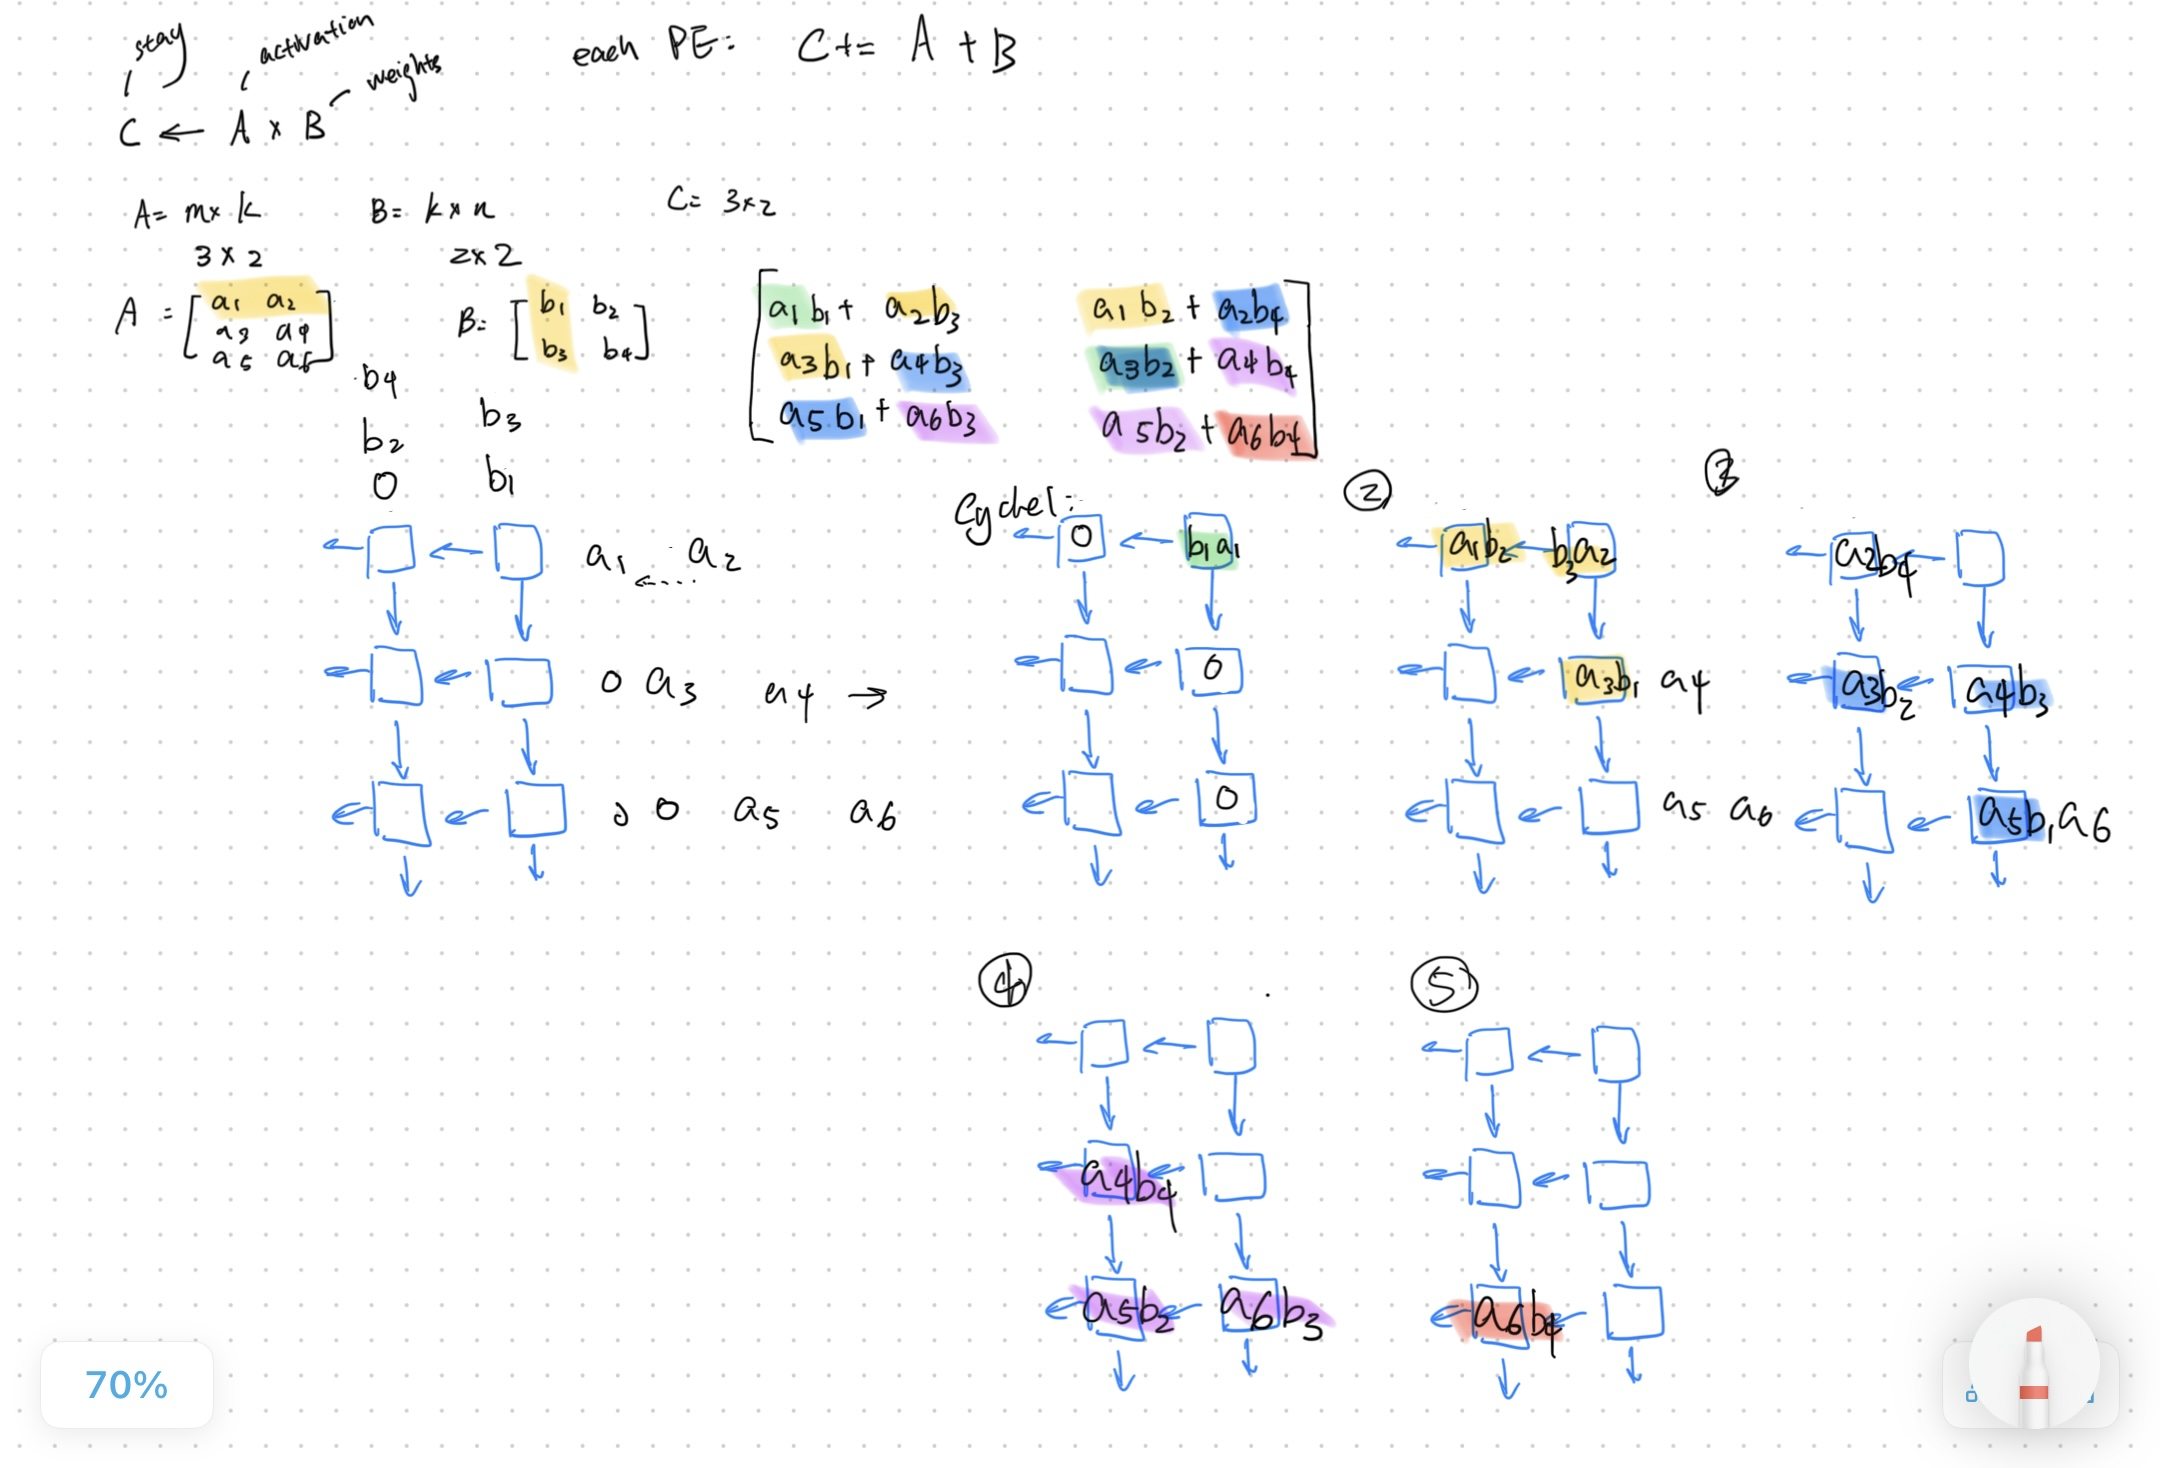 stay
activation
weights
each PE: C+= A + B
C ← A × B
A= m× k B= k × n C= 3×2
3 × 2 2×2
A = [ a1 a2
a3 a4
a5 a6 ]
B= [ b1 b2
b3 b4 ]
[ a1b1 + a2b3 a1b2 + a2b4
a3b1 + a4b3 a3b2 + a4b4
a5b1 + a6b3 a5b2 + a6b4 ]
b4
b2 b3
0 b1
a1 a2
0 a3 a4 →
0 0 a5 a6
Cycle1:
0 b1a1
0
0
②
a1b2 b3a2
a3b1 a4
a5 a6
③
a2b4
a3b2 a4b3
a5b1 a6
④
a4b4
a5b2 a6b3
⑤
a6b4
70%